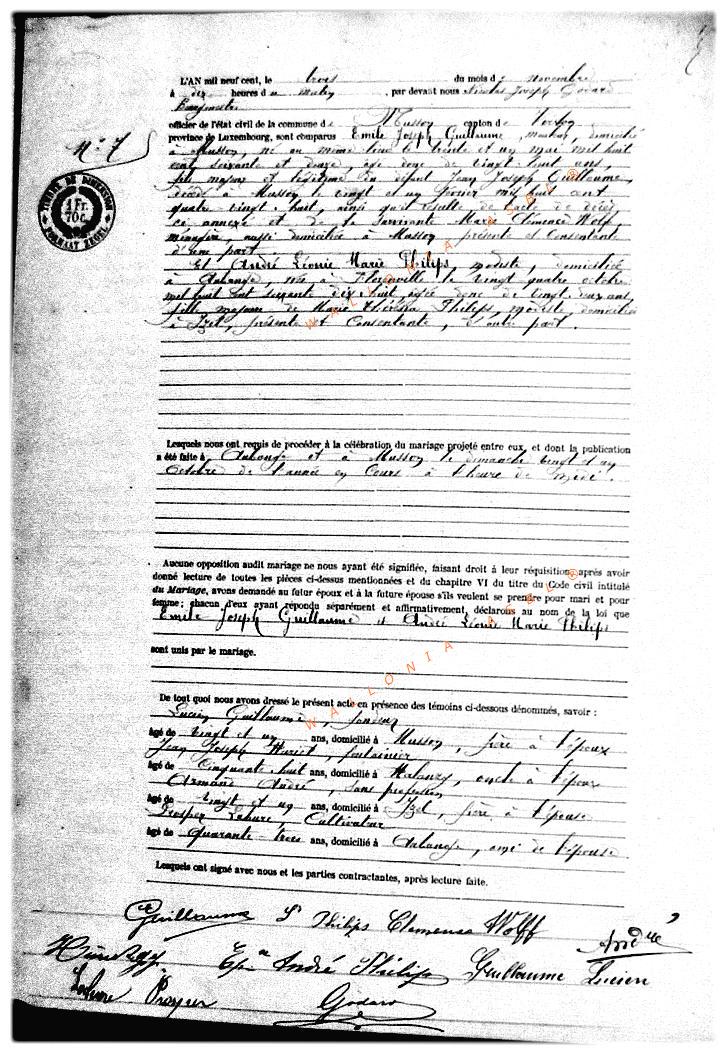 L'AN mil neuf cent, le trois du mois de novembre
à dix heures du matin, par devant nous Nicolas Joseph Godard
Bourgmestre
officier de l'état civil de la commune de Musson canton de Virton
province de Luxembourg, sont comparus Emile Joseph Guillaume, domicilié
N° 7
à Musson, né au même lieu le trente et un mai mil huit
cent soixante et douze, âgé donc de vingt huit ans,
fils majeur et légitime du défunt Jean Joseph Guillaume,
décédé à Musson le vingt et un mil huit cent
quatre vingt huit, ainsi qu'il résulte de l'acte de décès
TIMBRE DE DIMENSION
1 Fr.
70c.
FORMAAT ZEGEL
ci annexé et de la survivante Marie Clémence Wolff
ménagère, aussi domiciliée à Musson présente et consentante
d'une part.
Et André Léonie Marie Philips, modiste, domiciliée
à Aubange née à Florenville le vingt quatre octobre
mil huit cent soixante dix huit âgée donc de vingt deux ans,
fille majeure de Marie Thérèse Philips, modiste, domiciliée
à Izel, présente et consentante, d'autre part.
Lesquels nous ont requis de procéder à la célébration du mariage projeté entre eux, et dont la publication
a été faite à Aubange et à Musson le dimanche vingt et un
octobre de l'année en cours à l'heure de midi.
Aucune opposition audit mariage ne nous ayant été signifiée, faisant droit à leur réquisition, après avoir
donné lecture de toutes les pièces ci-dessus mentionnées et du chapitre VI du titre du Code civil intitulé
du Mariage, avons demandé au futur époux et à la future épouse s'ils veulent se prendre pour mari et pour
femme; chacun d'eux ayant répondu séparément et affirmativement, déclarons au nom de la loi que
Emile Joseph Guillaume et André Léonie Marie Philips
sont unis par le mariage.
De tout quoi nous avons dressé le présent acte en présence des témoins ci-dessous dénommés, savoir :
Lucien Guillaume,
âgé de vingt et un ans, domicilié à Musson, frère à l'époux
Jean Joseph, fontainier
âgé de cinquante huit ans, domicilié à Halanzy, oncle à l'époux
Armand André, sans profession
âgé de vingt et un ans, domicilié à Izel, frère à l'épouse
Prosper Lahure, Cultivateur
âgé de quarante trois ans, domicilié à Aubange, ami de l'épouse
Lesquels ont signé avec nous et les parties contractantes, après lecture faite.
Guillaume Philips Clemence Wolff
André
André Philips Guillaume Lucien
Lahure Prosper Godard
WALLONIA ASBL ®
WALLONIA ASBL ®